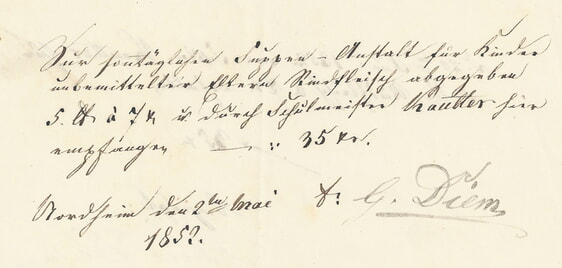 Zur sonntäglichen Suppen-Anstalt für Kinder
unbemittelter Eltern Rindfleisch abgegeben
5. ℔ à 7 x u. durch Schulmeister Kautter hier
empfangen — : 35 xr.
Nordheim den 2ten Mai
1852.
t: G. Diem